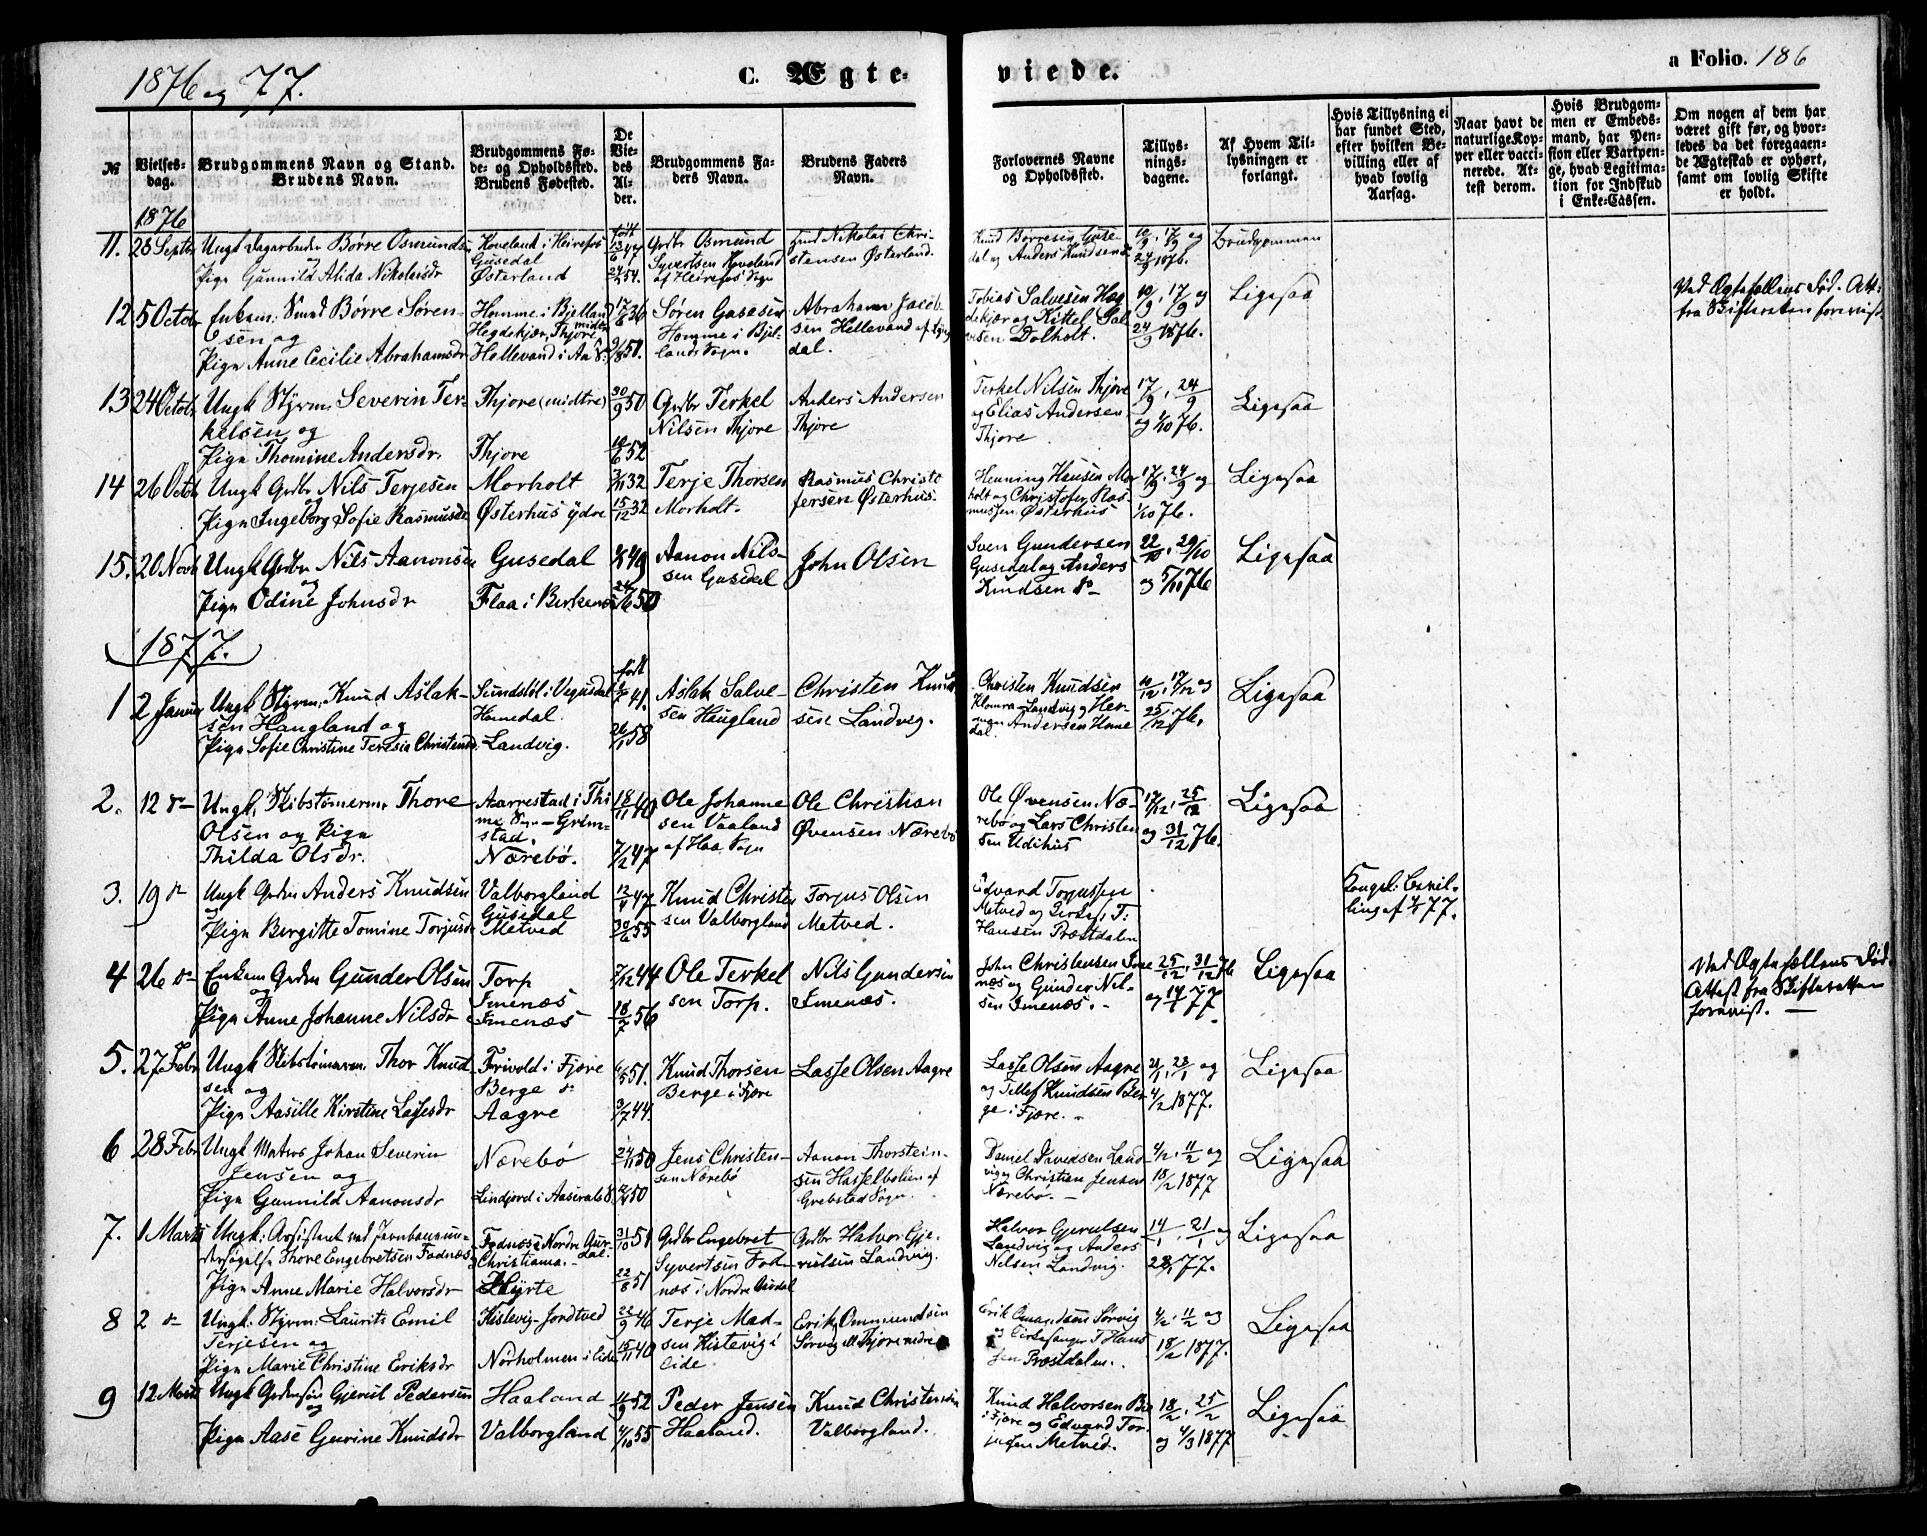 1876 og 77.
C. Ægte-
viede.
a Folio. 186
№
Vielses-
dag.
Brudgommens Navn og Stand.
Brudens Navn.
Brudgommens Fø-
de- og Opholdssted.
Brudens Fødested.
De
Vie-
des
Al-
der.
Brudgommens Fa-
ders Navn.
Brudens Faders
Navn.
Forlovernes Navne
og Opholdssted.
Tillys-
nings-
dagene.
Af Hvem Til-
lysningen er
forlangt.
Hvis Tillysning ei
har fundet Sted,
efter hvilken Be-
villing eller af
hvad lovlig
Aarsag.
Naar havt de
naturlige Kop-
per eller vacci-
nerede. At-
test derom.
Hvis Brudgom-
men er Embeds-
mand, har Pen-
sion eller Vartpen-
ge, hvad Legitima-
tion for Indskud
i Enke-Cassen.
Om nogen af dem har
været gift før, og hvor-
ledes da det foregaaen-
de Ægteskab er ophørt,
samt om lovlig Skifte
er holdt.
1876
11. 28 Septbr
Ungk Dagarbeider Börre Osmunds.
og
Pige Gunnild Alida Nikolaisdr
Koveland i Heirefos
Gusedal
Østerland
født
13/6 47
24/2 54.
Grdbr Osmund
Syvertsen Koveland
af Heirefos Sogn
Nikolai Chri-
stensen Østerland.
Knud Börresen Guse-
dal og Anders Knudsen
10/9, 17/9 og
24/9 1876.
Brudgommen
12 5 Octob
Enkem: Smed Börre Sören-
sen og
Pige Anne Cecilie Abrahamsdr
Homme i Bjelland
Hegdekjær, Thjore midtre
Hellevand i Aa S.
17/6 36
9/8 50.
Sören Gasesen
Homme i Bjel-
lands Sogn.
Abraham Jacob-
sen Hellevand af Lyng
dal.
Tobias Salvesen Heg
dekjær og Kittel Sal
vesen Dolholt.
10/9, 17/9 og
24/9 1876.
Ligesaa
Ved Ægtefællens Död. Att:
fra Skifteretten forevist
13 24 Octob.
Ungk Styrm. Severin Ter-
kelsen og
Pige Thomine Andersdr.
Thjore (midtre)
Thjore
30/9 50
10/6 52
Grdbr Terkel
Nilsen Thjore
Anders Andersen
Thjore
Terkel Nilsen Thjore
og Elias Andersen
Thjore
17/9, 24/9
og 1/10 76.
Ligesaa
14 26 Octob
Ungk Grdbr Nils Terjesen
Pige Ingeborg Sofie Rasmusdr
Morholt
Østerhus ydre
3/11 32
15/12 32
Terje Thorsen
Morholt.
Rasmus Christo
fersen Østerhus.
Henning Hansen Mor
holt og Christofer Ras-
mussen Østerhus
17/9, 24/9 og
1/10 76.
Ligesaa
15. 20 Novb
Ungk Grdbr Nils Aanonsen
og
Pige Odine Johnsdr
Gusedal
Flaa i Birkenes
49
24/6 50
Aanon Nils-
sen Gusedal
John Olsen
Sven Gundersen
Gusedal og Anders
Knudsen do
22/10, 29/10
og 5/11 76
Ligesaa
1877.
1 2 Januar
Ungk Styrm. Knud Aslak-
sen Haugland og
Pige Sofie Christine Teresia Christensdr.
Sundslöl i Vegusdal
Homedal.
Landvig.
født
41.
26/1 58
Aslak Salve-
sen Haugland
Christen Knud
sen Landvig.
Christen Knudsen
Landvig og Her-
man Andersen Home
dal.
10/12, 17/12 og
25/12 76.
Ligesaa
2. 12 do
Ungk. Skibstömerm. Thore
Olsen og Pige
Thilda Olsdr.
Aarrestad i Thi
me Sogn - Grim-
stad.
Nærebö.
18/11 40
7/2 47
Ole Johanne
sen Vaaland
af Haa Sogn
Ole Christian
Øvensen Nærebö
Ole Øvensen Næ-
rebö og Lars Christen
sen Udihus
17/12, 25/12
og 31/12 76.
Ligesaa
3. 19 do
Ungk Grdm Anders Knudsen
og
Pige Bergitte Tomine Torjusdr
Valborgland
Gusedal
Metved
12/4 47
30/6 55
Knud Christen
sen Valborgland
Torjus Olsen
Metved.
Edvard Torjussen
Metved og T:
Hansen Præstdalen
Kongel: bevil-
ling af 77.
4 26 do
Enkem Grdm Gunder Olsen
og
Pige Anne Johanne Nilsdr
Torp
Imenæs
Imenæs
7/12 44
18/7 56
Ole Terkel
sen Torp.
Nils Gundersen
Imenæs.
John Christensen Ime
næs og Gunder Nil-
sen Imenæs.
25/12, 31/12 76
og 14/1 77.
Ligesaa
Ved Ægtefællens Död
Attest fra Skifteretten
forevist.
5. 27 Febr
Ungk Skibstömerm. Thor Knud
sen og
Pige Aasille Kirstine Lassesdr
Frivold i Fjære
Berge do
Aagre
6/5 51.
3/7 44.
Knud Thorsen
Berge i Fjære
Lasse Olsen Aagre
Lasse Olsen Aagre
og Tellef Knudsen Ber
ge i Fjære.
21/1, 28/1 og
4/2 1877.
Ligesaa
6 28 Febr
Ungk Matros Johan Severin
Jensen og
Pige Gunnild Aanonsdr
Nærebö
Lindjord i Aaserals S.
24/11 50
50
Jens Christen-
sen Nærebö
Aanon Thorstein-
sen Hasselbalien af
Grebstad Sogn.
Daniel Davidsen Land
vig og Christian Jensen
Nærebö.
4/2, 11/2 og
18/2 1877
Ligesaa
7. 1 Marts
Ungk: Assistent ved Jernbaneun-
dersögelse Thore Engebretsen Fodnæs og
Pige Anne Marie Halvorsdr
Fodnæs i Nordre Aur
dal-
Christiania.
Hyrte
31/10 51
22/8 51
Grdbr Engebret
Syvertsen Fod-
næs i Nordre Aurdal
Grdbr Halvor Gje-
rulsen Landvig.
Halvor Gjerulsen
Landvig og Anders
Nilsen Landvig.
14/1, 21/1 og
28/1 77.
Ligesaa
8 2 do
Ungk. Styrm: Laurits Emil
Terjesen og
Pige Marie Christine Eriksdr
Kistevig-Jordtved
Norholmen i Eide
23/9 46
15/11 40
Terje Mad-
sen Kistevig i
Eide.
Erik Ommundsen
Sörvig ell Thjore nedre
Erik Omundsen Sörvig
og Kirkesanger T Han-
sen Præstdalen.
4/2, 11/2 og
18/2 1877.
Ligesaa
9 12 Marts
Ungk Grdmsön Gjerul Pedersen
og
Pige Aase Gurine Knudsdr
Haaland
Valborgland
11/9 52
4/10 55
Peder Jensen
Haaland.
Knud Christensen
Valborgland.
Knud Halvorsen Bie
i Fjære og Edvard Tor-
jussen Metved.
18/2, 25/2
og 4/3 1877
Ligesaa